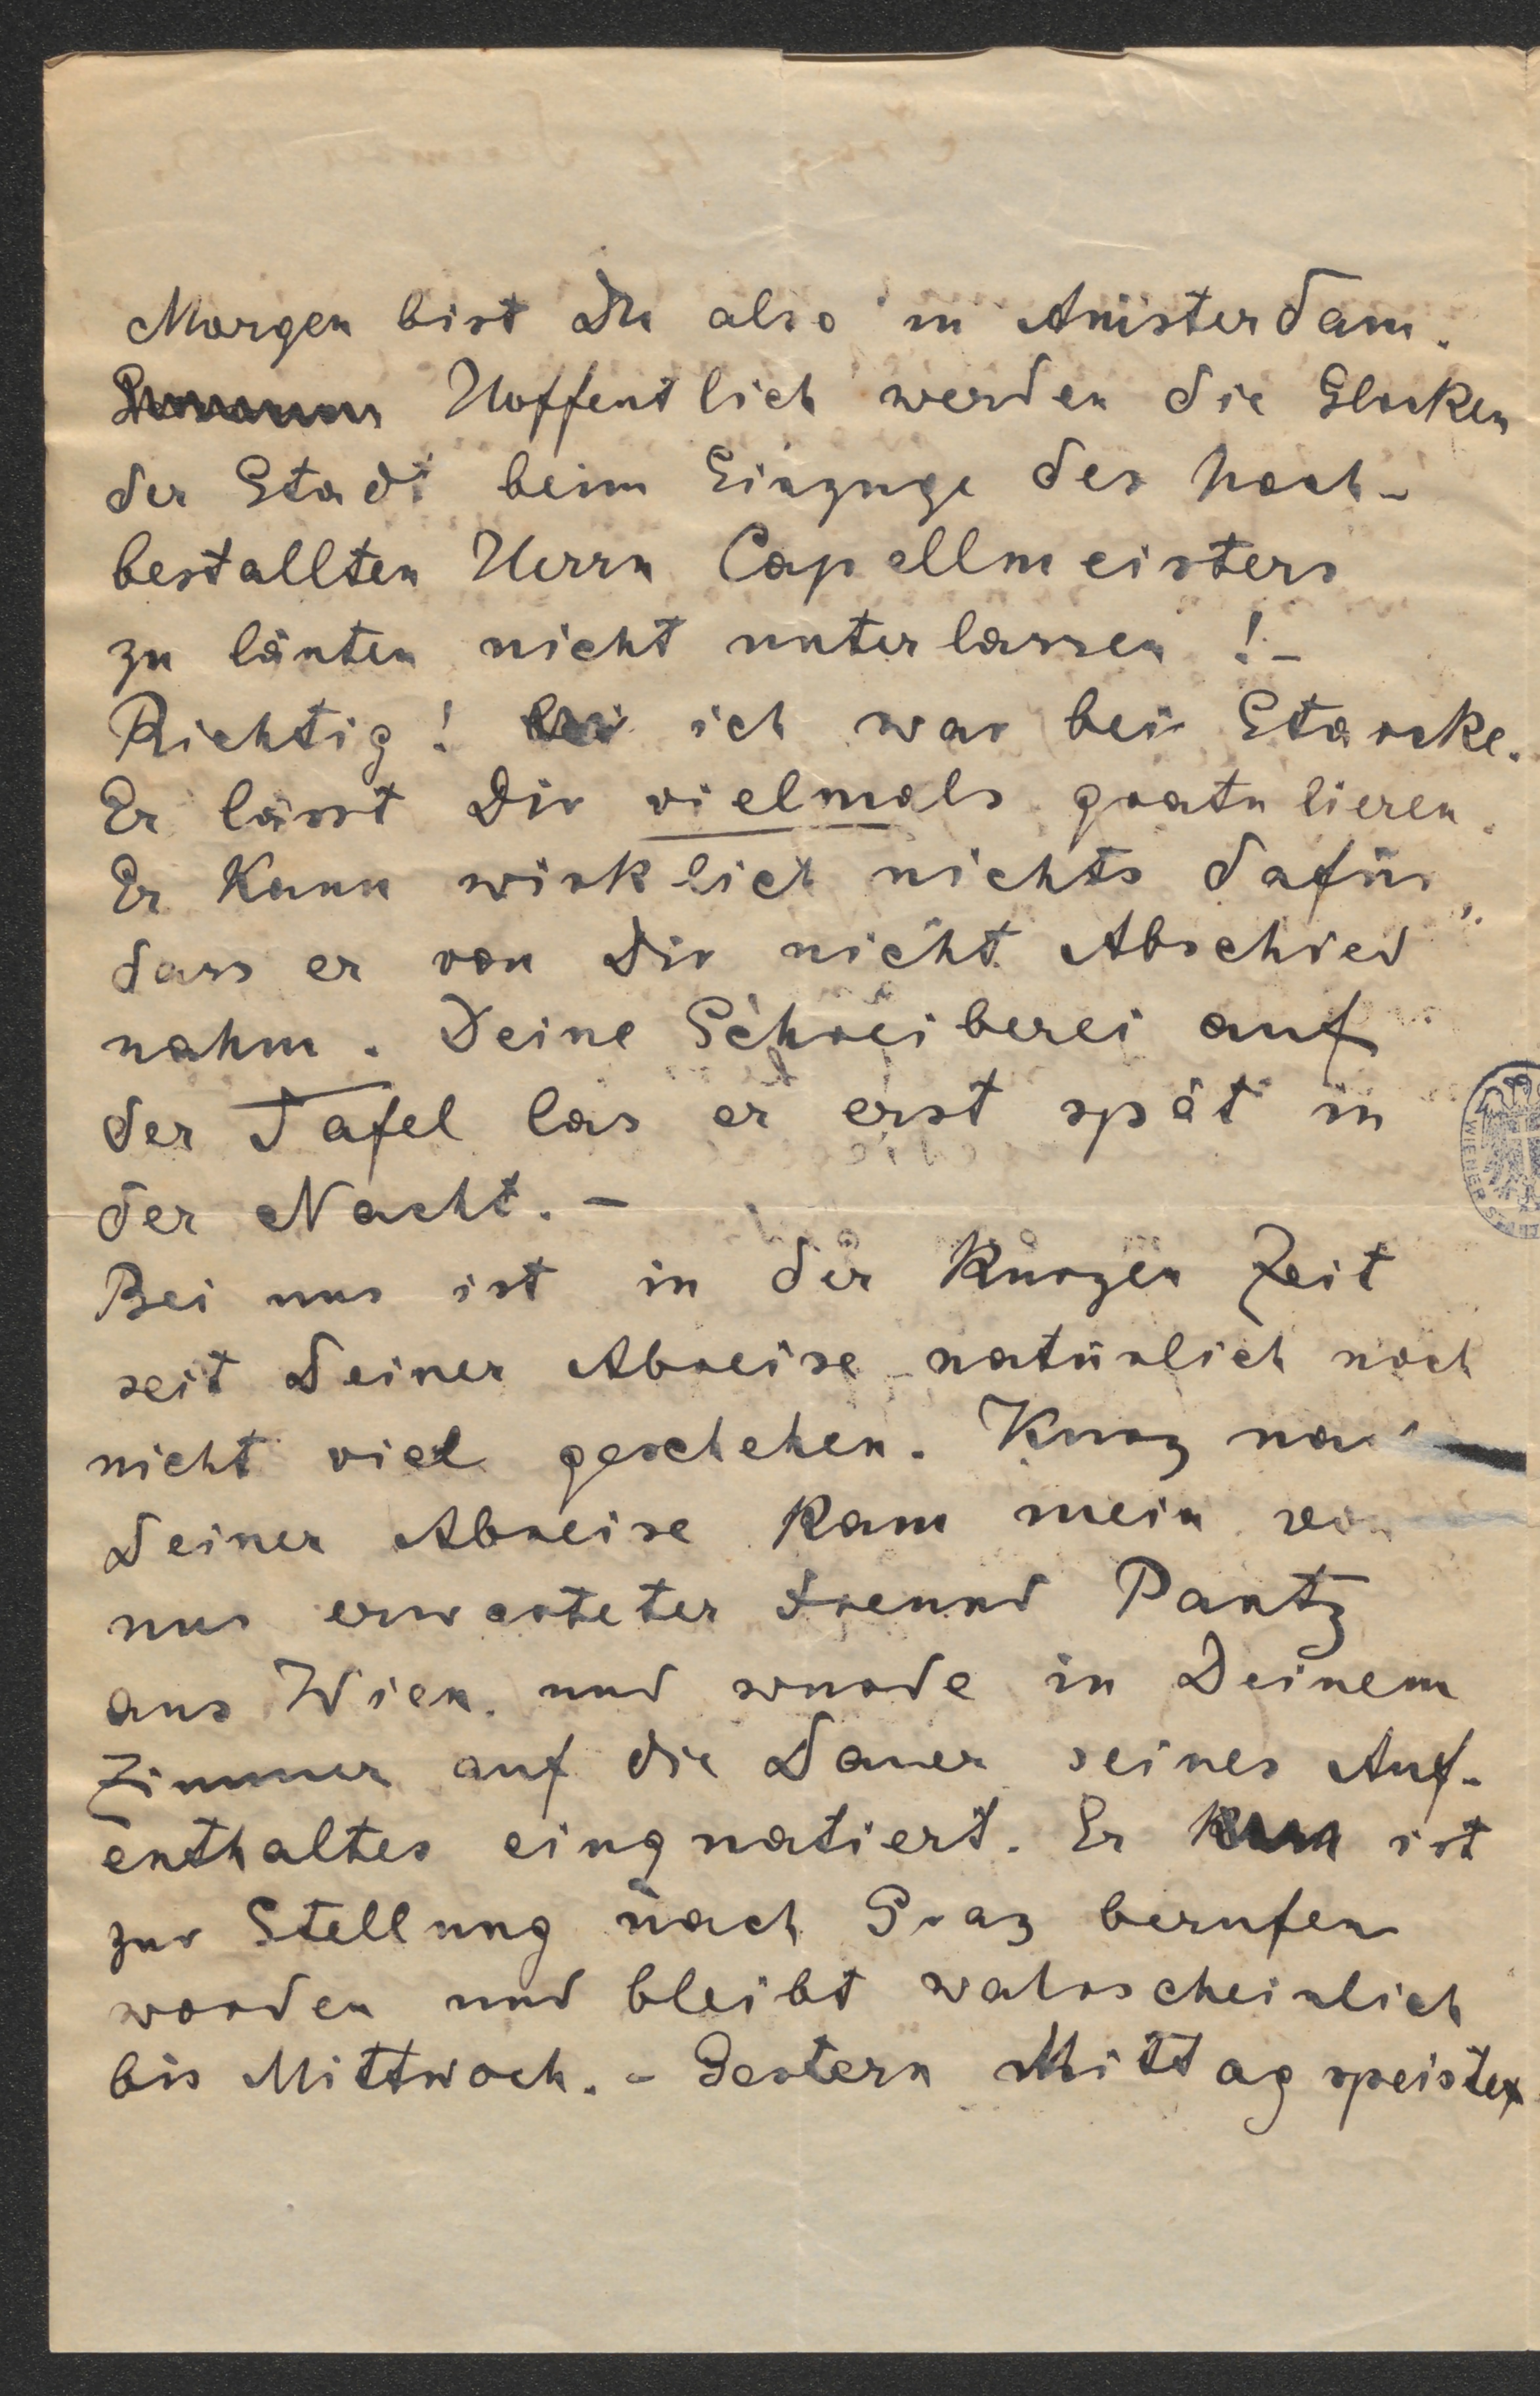 Morgen bist Du also in Amsterdam.
Hoffentlich werden die Glocken
der Stadt beim Einzuge des hoch-
bestallten Herrn Capellmeisters
zu läuten nicht unterlassen! -
Richtig! ich war bei Starcke.
Er lässt Dir vielmals gratulieren.
Er kann wirklich nichts dafür,
dass er von Dir nicht Abschied
nahm. Deine Schreiberei auf
der Tafel las er erst spät in
der Nacht. -
Bei uns ist in der kurzen Zeit
seit Deiner Abreise natürlich noch
nicht viel geschehen. Kurz
Deiner Abreise kam mein von
uns erwarteter Freund Pantz
aus Wien und wurde in Deinem
Zimmer auf die Dauer seines Auf-
enthaltes einquatiert. Er ist
zur Stellung nach Graz berufen
worden und bleibt wahrscheinlich
bis Mittwoch. - Gestern Mittag speiste
WIENER